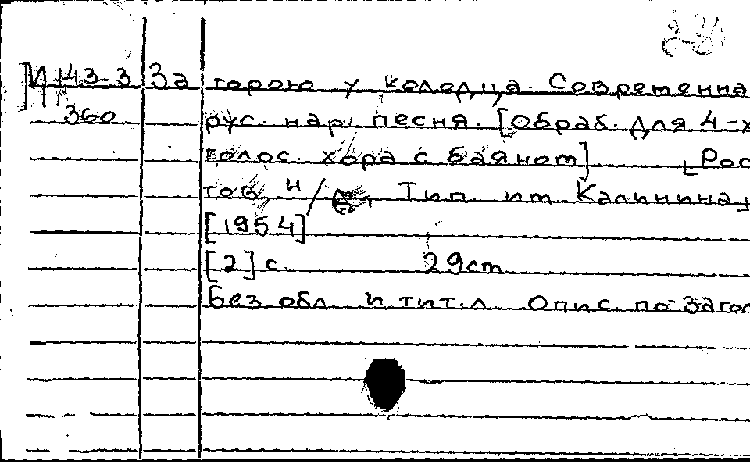 М 43-3 За горою у колодца. Современна
360 рус. нар. песня. [Обраб. для 4-х
голос. хора с баяном] [Рос
тов, н/Д, Тип. им. Калинина,
[1954]
[2] с. 29см
Без обл. и тит. л. Опис. по загол